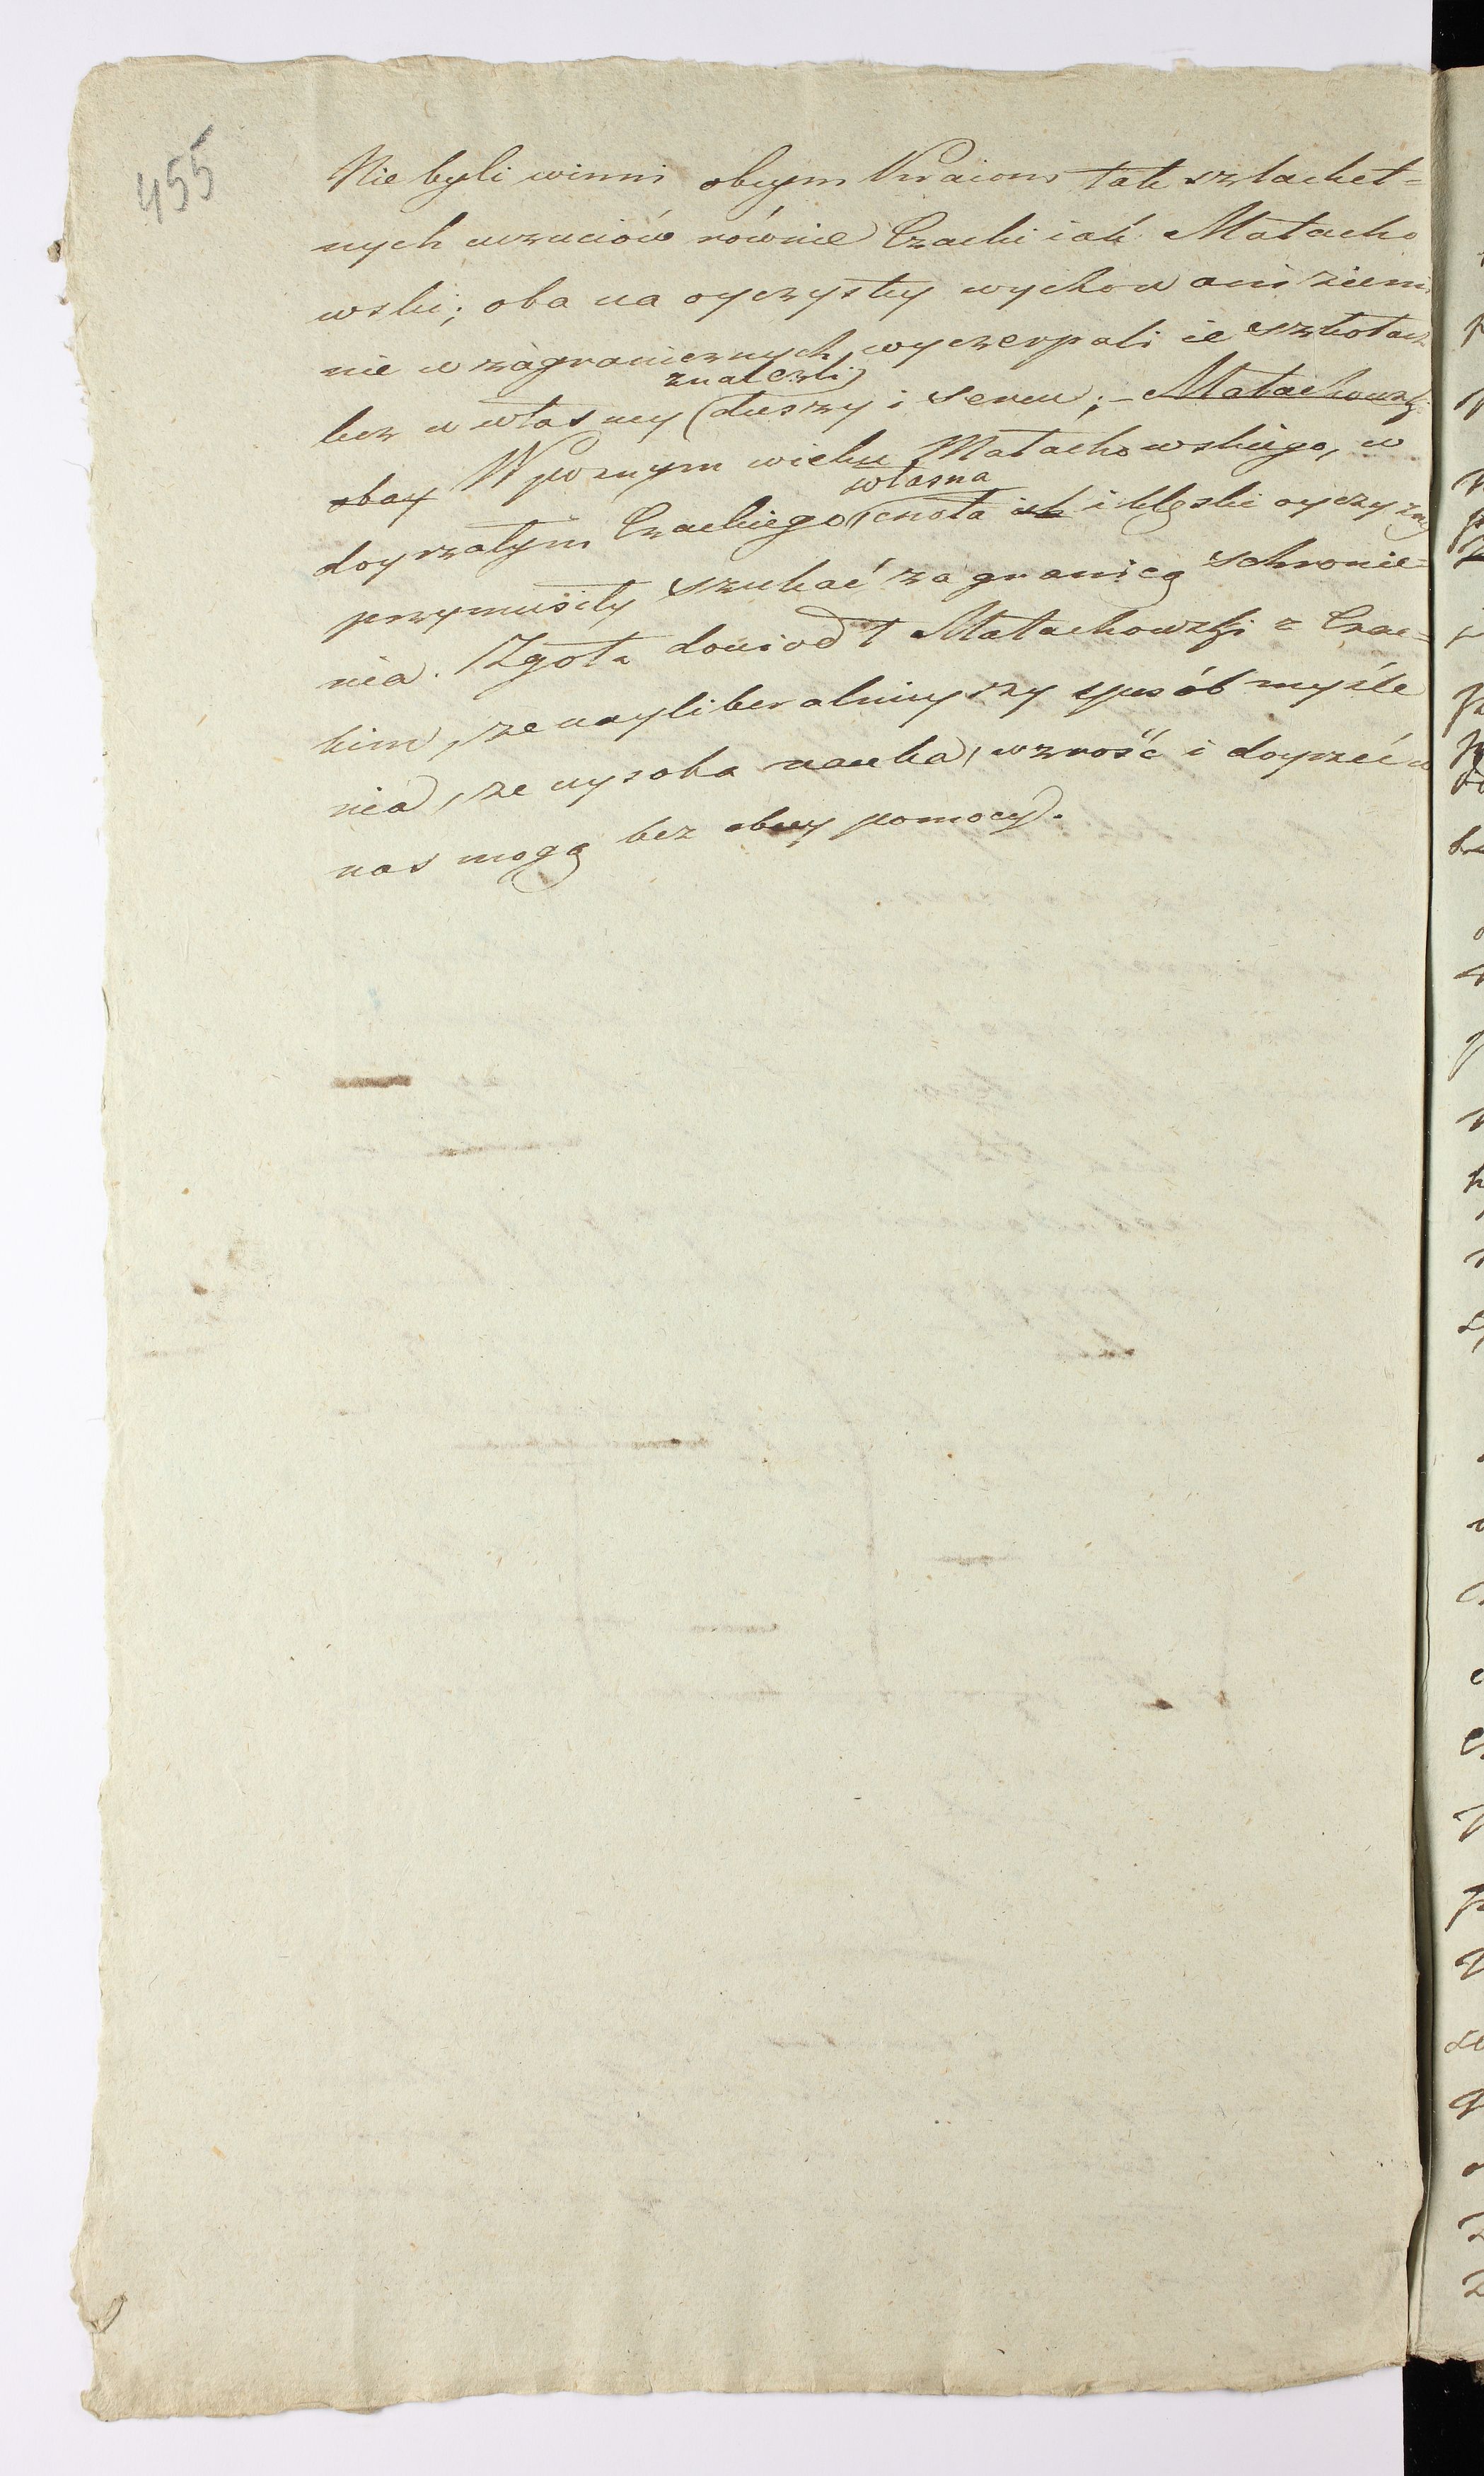 455
Nie byli winni obcym Kraiom tak szlachet=
nych uczuciów równie Czacki iak Małacho
wski; oba na oyczystey wychowani ziemi
nie w zagranicznych, wyczerpali ie szkołach
znalezli
lecz w własney (duszy i sercu; – Małachowski
obay W poznym wieku Małachowskiego, w
własna
doyrzałym Czackiego (cnota ich i klęski oyczyzny
przymusiły szukać zagranicą schronie=
nia. Zgoła dowiodł Małachowski z Czac=
kim, że nayliberalnieyszy sposób myśle
nia, że wysoka nauka, wzrość i doyrzeć u
nas mogą bez obcey pomocy.